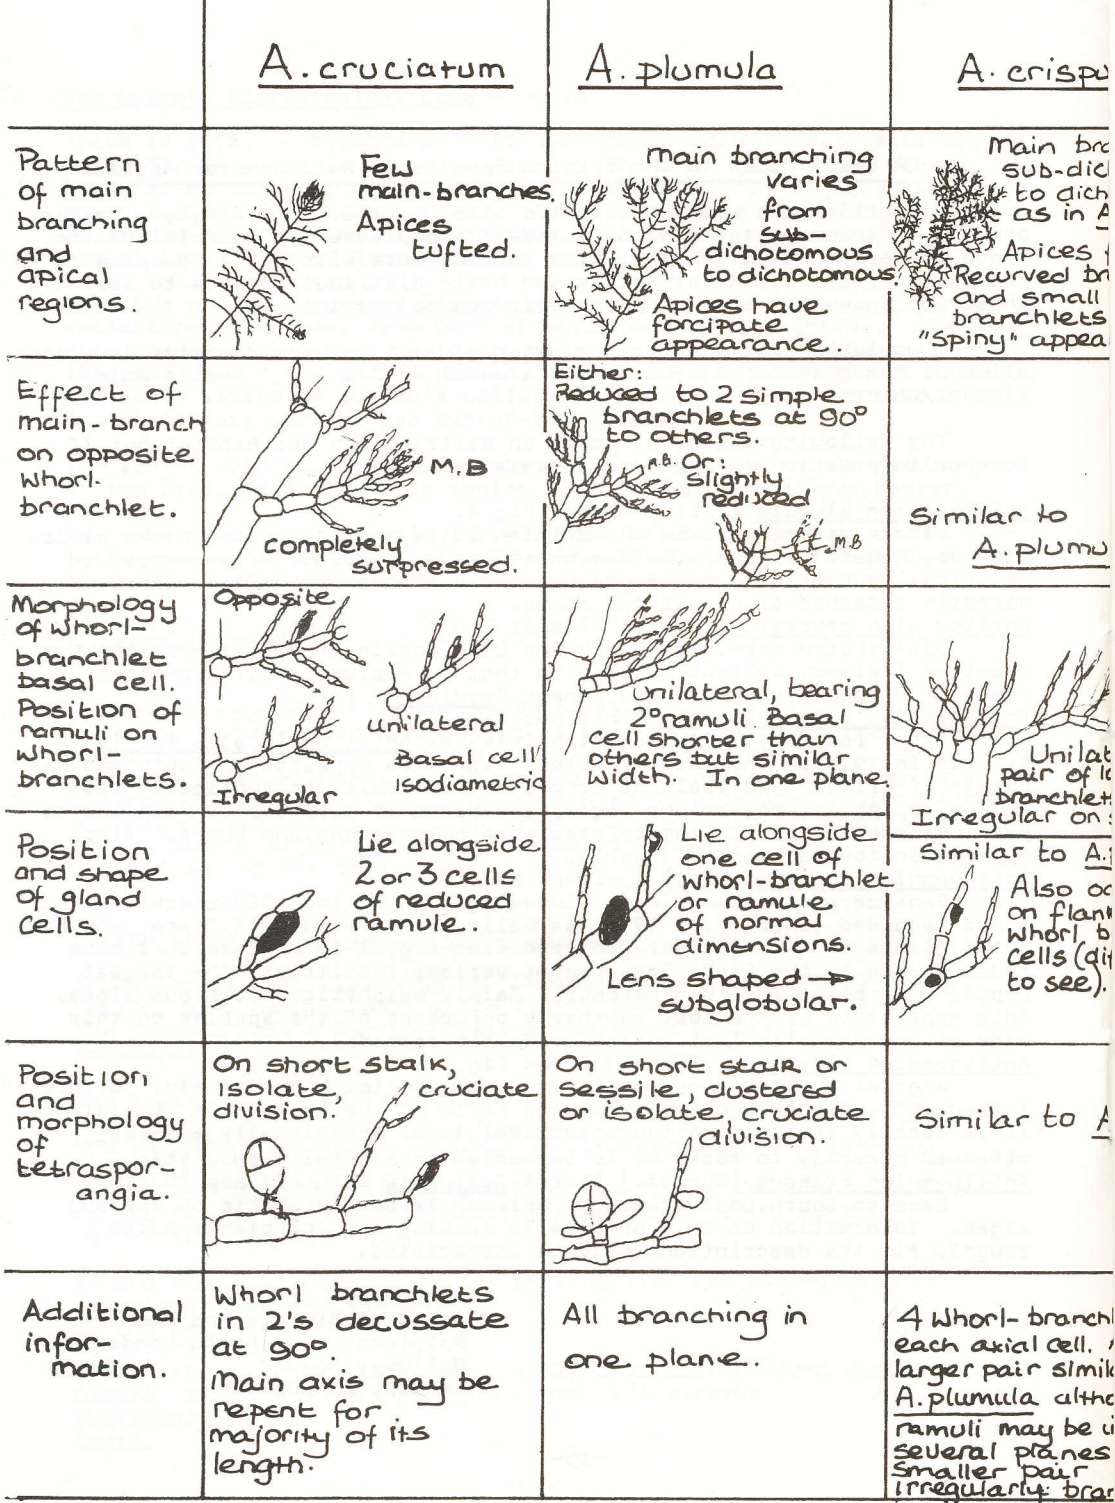 A. cruciatum
A. plumula
A. crispu
Pattern
of main
branching
and
apical
regions.
Few
main-branches
Apices
tufted.
Main branching
varies
from
sub
dichotomous
to dichotomous
Apices have
forcipate
appearance.
Main bra
sub-dic
to dich
as in A
Apices
Recurved br
and small
branchlets
"spiny" appea
Effect of
main-branch
on opposite
whorl-
branchlet.
M.B
completely
surpressed.
Either:
Reduced to 2 simple
branchlets at 90°
to others.
M.B. Or:
slightly
reduced
M.B
Similar to
A. plumu
Morphology
of whorl-
branchlet
basal cell.
Position of
ramuli on
whorl-
branchlets.
Opposite
unilateral
Basal cell
isodiametric
Irregular
Unilateral, bearing
2° ramuli. Basal
cell shorter than
others but similar
width. In one plane.
Unilat
pair of l
branchlet
Irregular on
Position
and shape
of gland
cells.
Lie alongside
2 or 3 cells
of reduced
ramule.
Lie alongside
one cell of
whorl-branchlet
or ramule
of normal
dimensions.
Lens shaped →
subglobular.
Similar to A.
Also oc
on flan
whorl b
cells (dif
to see).
Position
and
morphology
of
tetraspor-
angia.
On short stalk,
isolate, cruciate
division.
On short stalk or
sessile, clustered
or isolate, cruciate
division.
Similar to A
Additional
infor-
mation.
Whorl branchlets
in 2's decussate
at 90°
Main axis may be
repent for
majority of its
length.
All branching in
one plane.
4 whorl-branchl
each axial cell.
larger pair simila
A. plumula altho
ramuli may be
several planes
smaller pair
irregularly bran